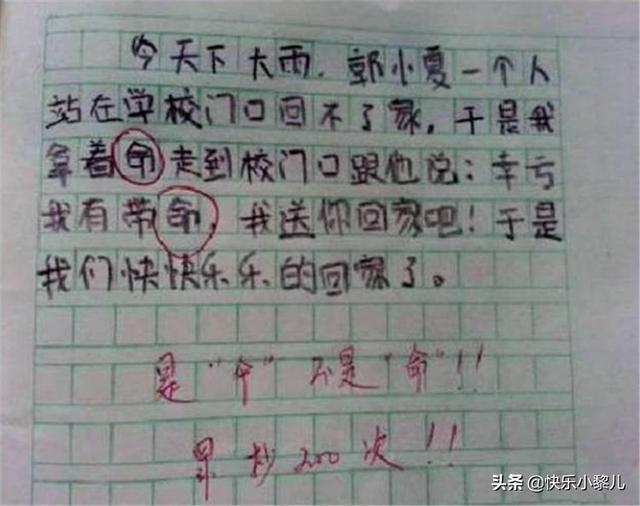 今天下大雨，郭小夏一个人
站在学校门口回不了家，于是我
拿着命走到校门口跟他说：幸亏
我有带命，我送你回家吧！于是
我们快快乐乐的回家了。
是“伞”不是“命”!!
罚抄200次!!
头条@快乐小黎儿